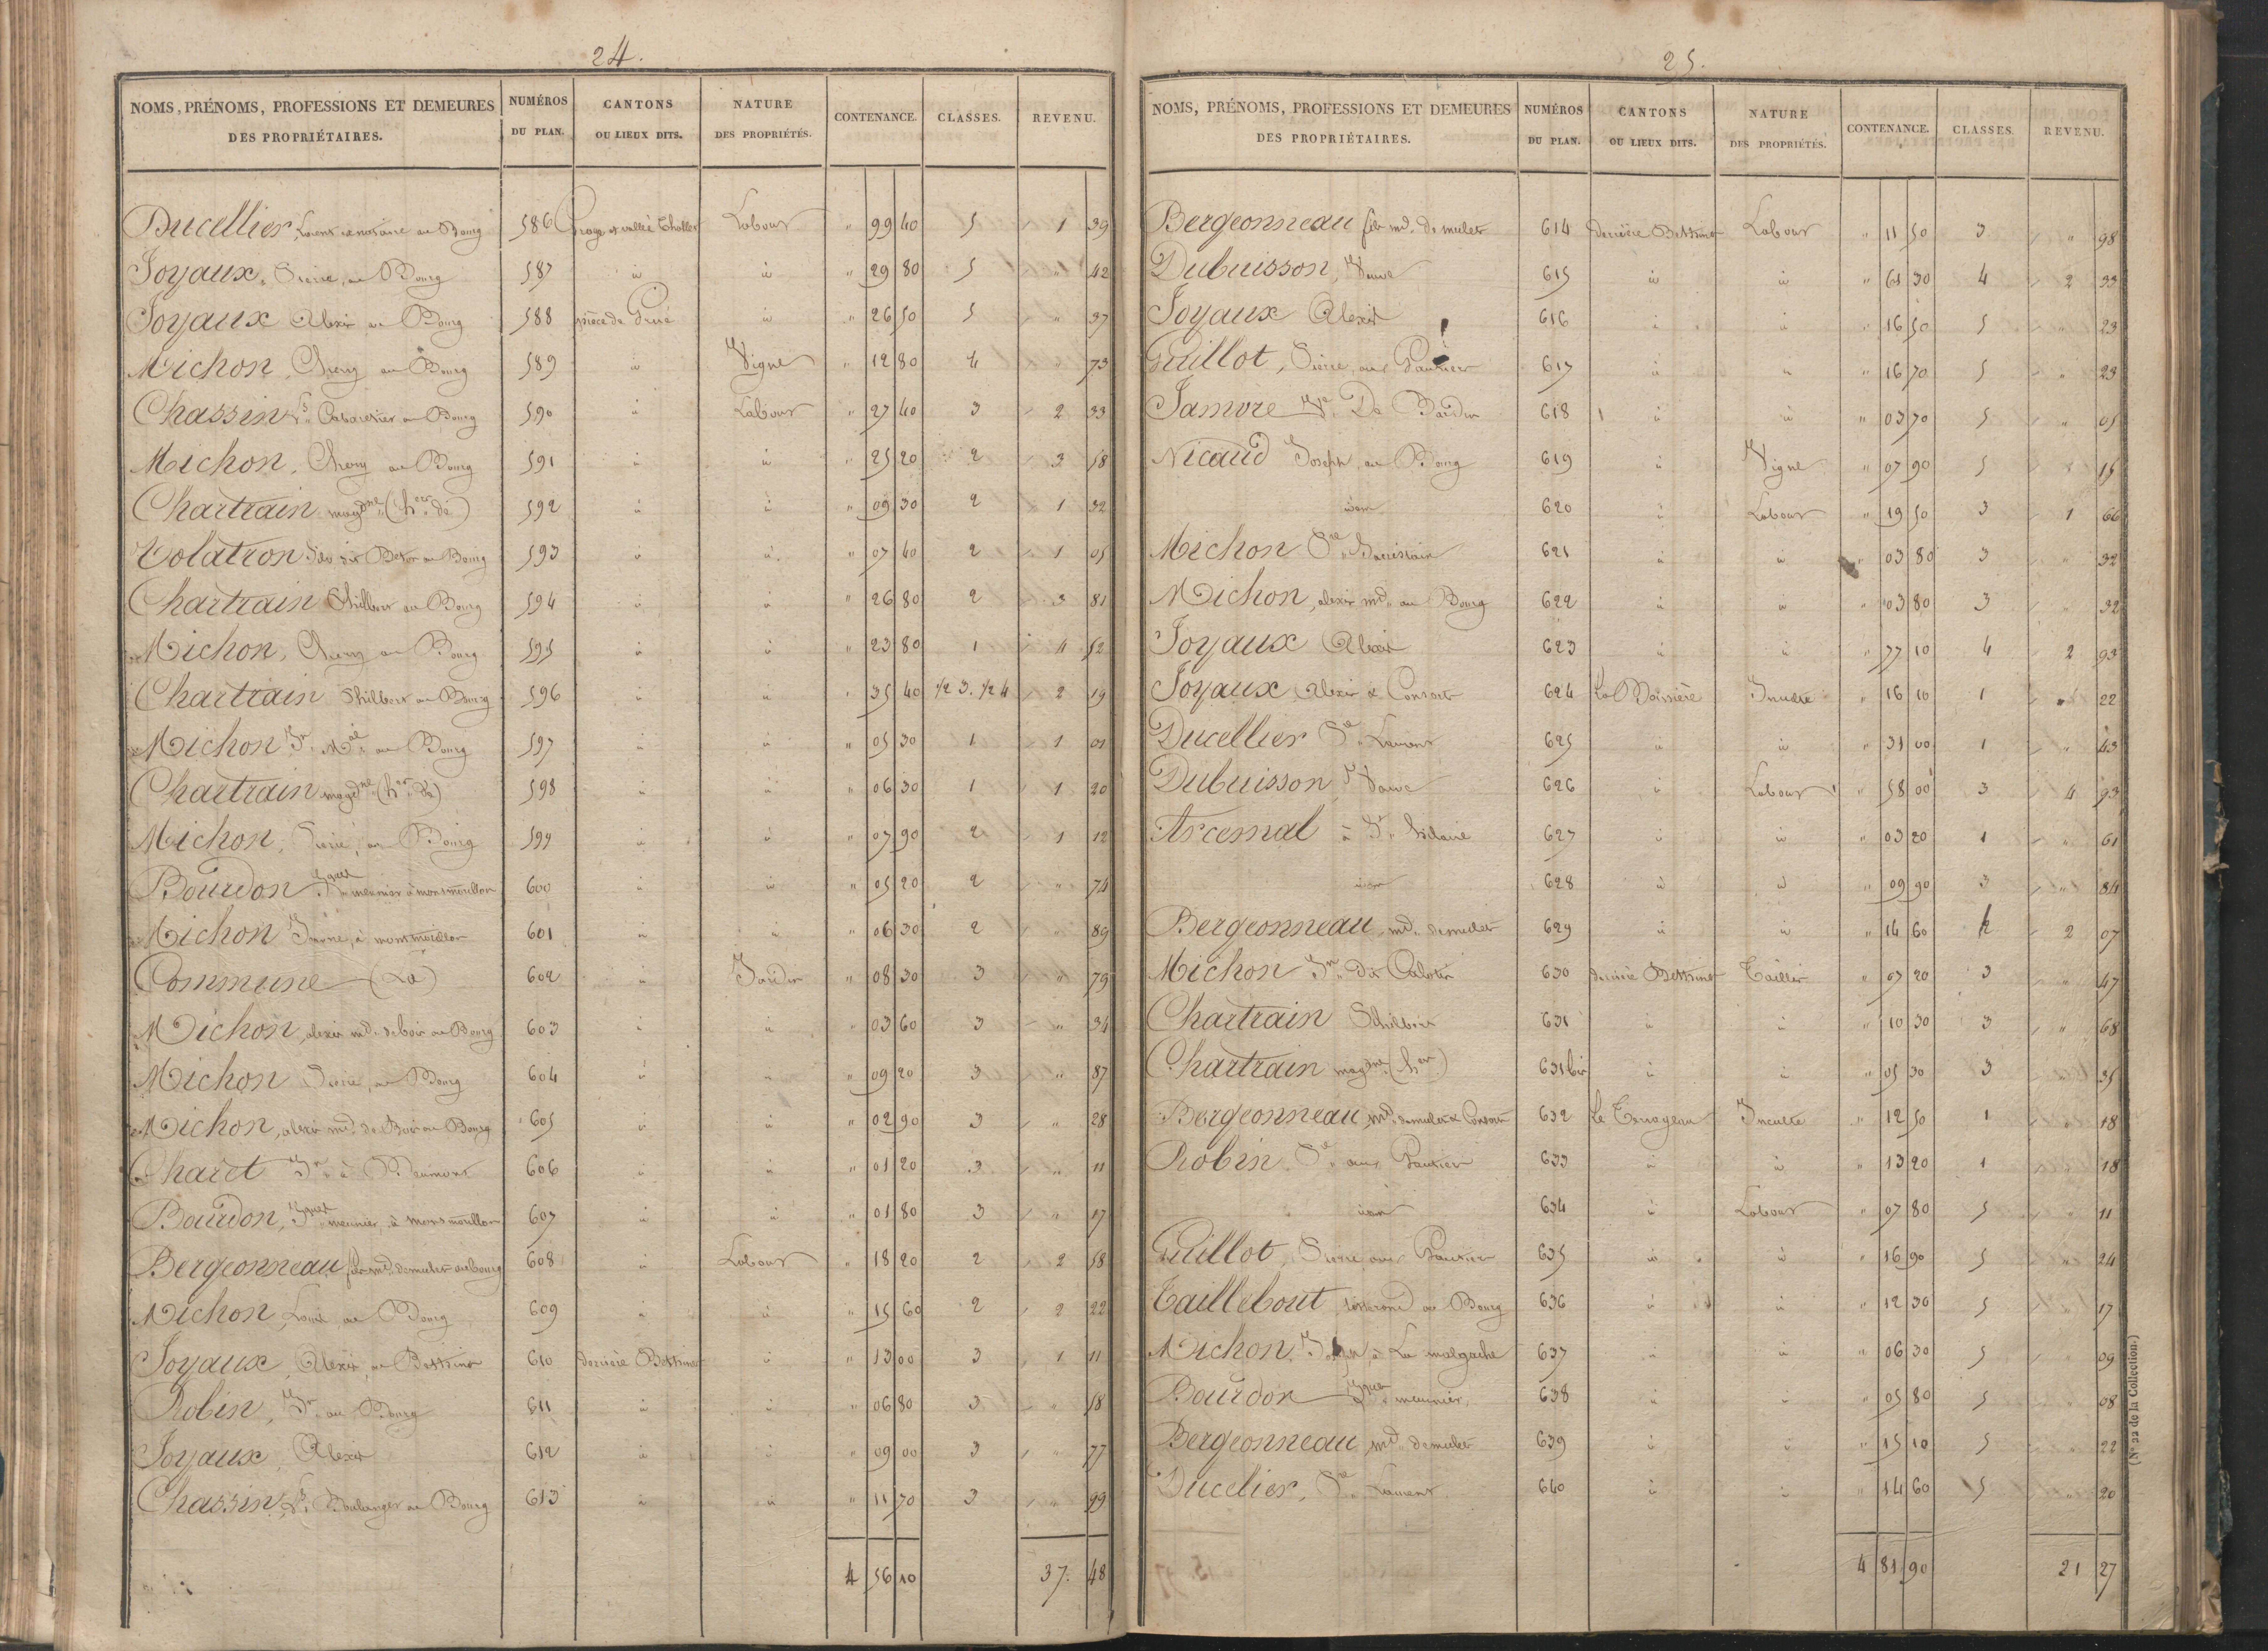 24.
NOMS, PRÉNOMS, PROFESSIONS ET DEMEURES DES PROPRIÉTAIRES. NUMÉROS DU PLAN. CANTONS OU LIEUX DITS. NATURE DES PROPRIÉTÉS. CONTENANCE. CLASSES. REVENU.
Ducellier, notaire au Bourg 586 vallée Labour " 99 40 5 1 39
Joyaux, Pierre, au Bourg 587 id id " 29 80 5 " 42
Joyaux Alexis au Bourg 588 pièce de id " 26 50 5 " 37
Michon, au Bourg 589 id Vigne " 12 80 4 " 73
Chassin Cabaretier au Bourg 590 id Labour " 27 40 3 2 33
Michon, au Bourg 591 id id " 25 20 2 3 58
Chartrain magdne (hers de) 592 id id " 09 30 2 1 32
Volatron au Bourg 593 id id " 07 40 2 1 05
Chartrain Philbert au Bourg 594 id id " 26 80 2 3 81
Michon, au Bourg 595 id id " 23 80 1 4 52
Chartrain Philbert au Bourg 596 id id " 35 40 1/2 3. 1/2 4 2 19
Michon Jn. au Bourg 597 id id " 05 30 1 1 01
Chartrain magdne (hers de) 598 id id " 06 30 1 1 20
Michon, Pierre, au Bourg 599 id id " 07 90 2 1 12
Bourdon meunier à montmoullon 600 id id " 05 20 2 " 74
Michon à montmoullon 601 id id " 06 30 2 " 89
Commune (La) 602 id Jardin " 08 30 3 " 79
Michon, alexis md. de bois au Bourg 603 id id " 03 60 3 " 34
Michon Pierre, au Bourg 604 id id " 09 20 3 " 87
Michon, alexis md. de Bois au Bourg 605 id id " 02 90 3 " 28
Charet Jn. à 606 id id " 01 20 3 " 11
Bourdon, meunier, à montmoullon 607 id id " 01 80 3 " 17
Bergeonneau fils md. de mulets au bourg 608 id Labour " 18 20 2 2 58
Michon, Louis, au Bourg 609 id id " 15 60 2 2 22
Joyaux, Alexis, au 610 derrière id " 13 00 3 1 11
Robin, Jn. au Bourg 611 id id " 06 80 3 " 58
Joyaux, Alexis 612 id id " 09 00 3 " 77
Chassin, Boulanger au Bourg 613 id id " 11 70 3 " 99
4 56 10 37. 48
25.
NOMS, PRÉNOMS, PROFESSIONS ET DEMEURES DES PROPRIÉTAIRES. NUMÉROS DU PLAN. CANTONS OU LIEUX DITS. NATURE DES PROPRIÉTÉS. CONTENANCE. CLASSES. REVENU.
Bergeonneau fils md. de mulets 614 derrière Labour " 11 50 3 " 98
Dubuisson, Veuve 615 id id " 61 30 4 2 33
Joyaux Alexis 616 id id " 16 50 5 " 23
Guillot, Pierre, aux 617 id id " 16 70 5 " 23
Jamore Ve. De 618 id id " 03 70 5 " 05
Nicaud Joseph, au Bourg 619 id Vigne " 07 90 5 " 15
idem 620 id Labour " 19 50 3 1 66
Michon Pre. Sacristain 621 id id " 03 80 3 " 32
Michon, alexis md. au Bourg 622 id id " 03 80 3 " 32
Joyaux Alexis 623 id id " 77 10 4 2 93
Joyaux, Alexis & Consorts 624 La Boissière Inculte " 16 10 1 " 22
Ducellier Pre. Laurent 625 id id " 31 00 1 " 43
Dubuisson Veuve 626 id Labour " 58 00 3 4 93
Arcemal à St. hilaire 627 id id " 03 20 1 " 61
idem 628 id id " 09 90 3 " 84
Bergeonneau, md. de mulets 629 id id " 14 60 2 2 07
Michon Jn. dit 630 derrière Taillis " 07 20 3 " 47
Chartrain Philbert 631 id id " 10 30 3 " 68
Chartrain magdne. (hers) 631 bis id id " 05 30 3 35
Bergeonneau md. de mulets & Consorts 632 Inculte " 12 50 1 " 18
Robin Pre. aux 633 id id " 13 20 1 " 18
idem 634 id Labour " 07 80 5 " 11
Guillot, Pierre, aux 635 id id " 16 90 5 " 24
Taillebout, au Bourg 636 id id " 12 30 5 " 17
Michon, à La malgache 637 id id " 06 30 5 " 09
Bourdon meunier, 638 id id " 05 80 5 " 08
Bergeonneau md. de mulets 639 id id " 15 10 5 " 22
Ducelier, Pre. Laurent 640 id id " 14 60 5 " 20
4 81 90 21 27
(N° 22 de la Collection.)